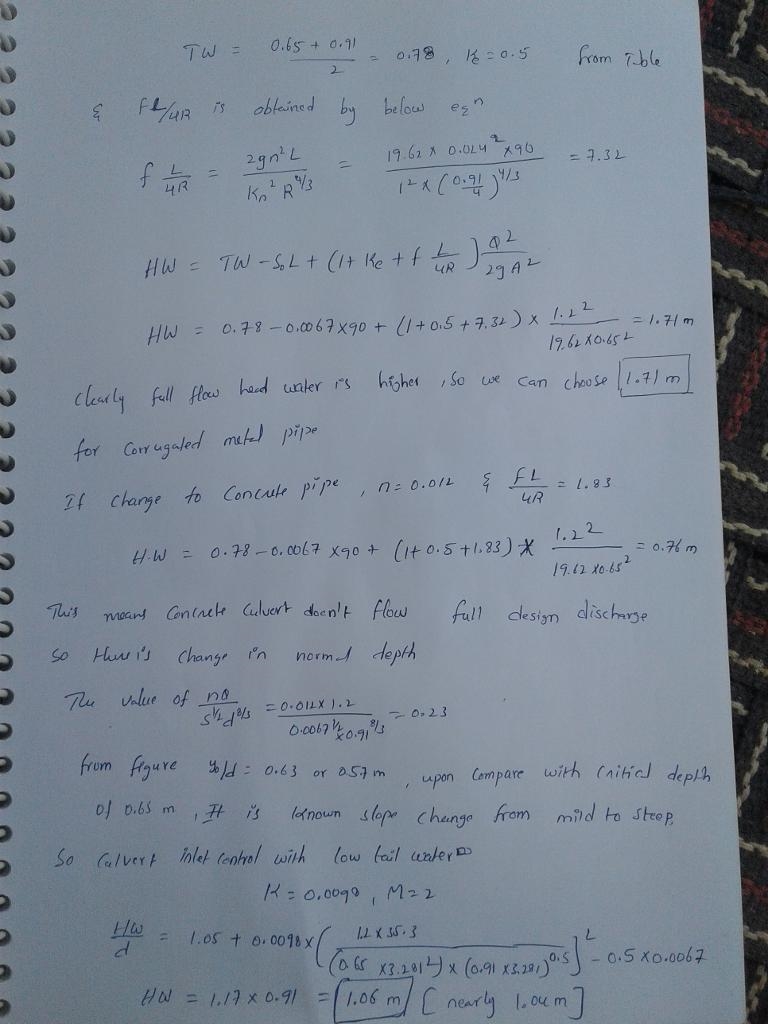 TW = (0.65 + 0.91)/2 = 0.78, Ke = 0.5 from Table
& fL/4R is obtained by below eqn
f L/4R = 2gn²L/(Kn² R^4/3) = (19.62 x 0.024² x 90)/(1² x (0.91/4)^4/3) = 7.32
HW = TW - S₀L + (1 + Ke + f L/4R) Q²/2gA²
HW = 0.78 - 0.0067 x 90 + (1 + 0.5 + 7.32) x 1.2²/(19.62 x 0.65²) = 1.71 m
Clearly full flow head water is higher, so we can choose 1.71 m
for corrugated metal pipe
If change to Concrete pipe, n = 0.012 & FL/4R = 1.83
H.W = 0.78 - 0.0067 x 90 + (1 + 0.5 + 1.83) x 1.2²/(19.62 x 0.65²) = 0.76 m
This means Concrete Culvert doesn't flow full design discharge
So there is change in normal depth
The value of nQ/(S^1/2 d^8/3) = (0.012 x 1.2)/(0.0067^1/2 x 0.91^8/3) = 0.23
from figure y₀/d = 0.63 or 0.57 m, upon compare with critical depth
of 0.65 m, It is known slope change from mild to steep,
So Culvert inlet control with low tail water
K = 0.0098, M = 2
HW/d = 1.05 + 0.0098 x (1.2 x 35.3/((0.65 x 3.281²) x (0.91 x 3.281)^0.5))² - 0.5 x 0.0067
HW = 1.17 x 0.91 = 1.06 m [nearly 1.04 m]